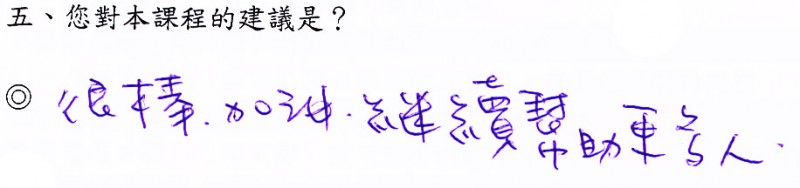 五、您對本課程的建議是？
◎ 很棒.加油.繼續幫助更多人.